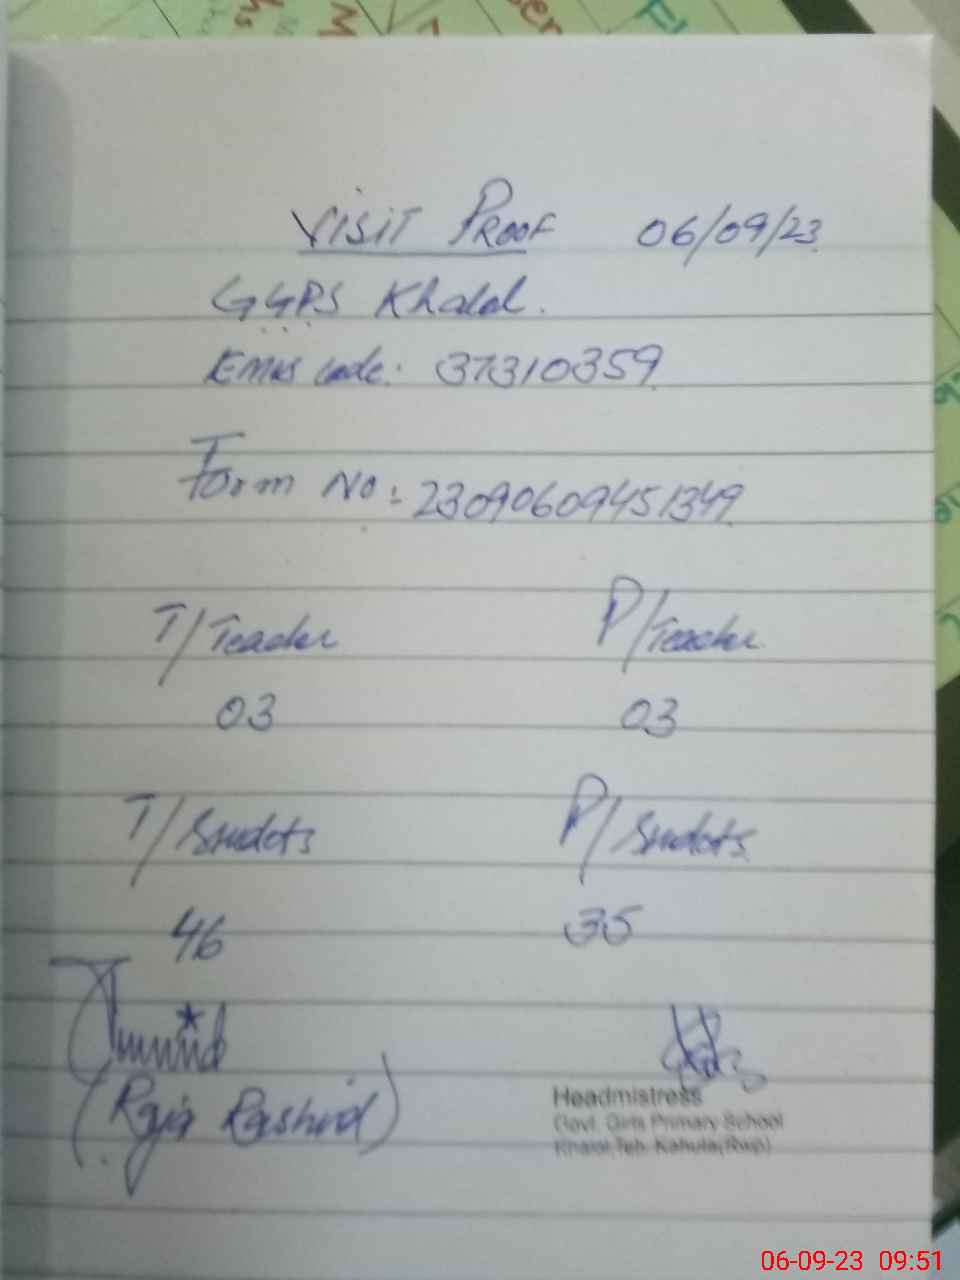 VISIT PROOF 06/09/23
GGPS Khalol.
EMIS code: 37310359
Form No: 23090609451349
T/Teacher P/Teacher
03 03
T/Studets P/Studets
46 35
(Raja Rashid)
Headmistress
Govt. Girls Primary School
Khalol, Teh. Kahuta(Rwp)
06-09-23 09:51